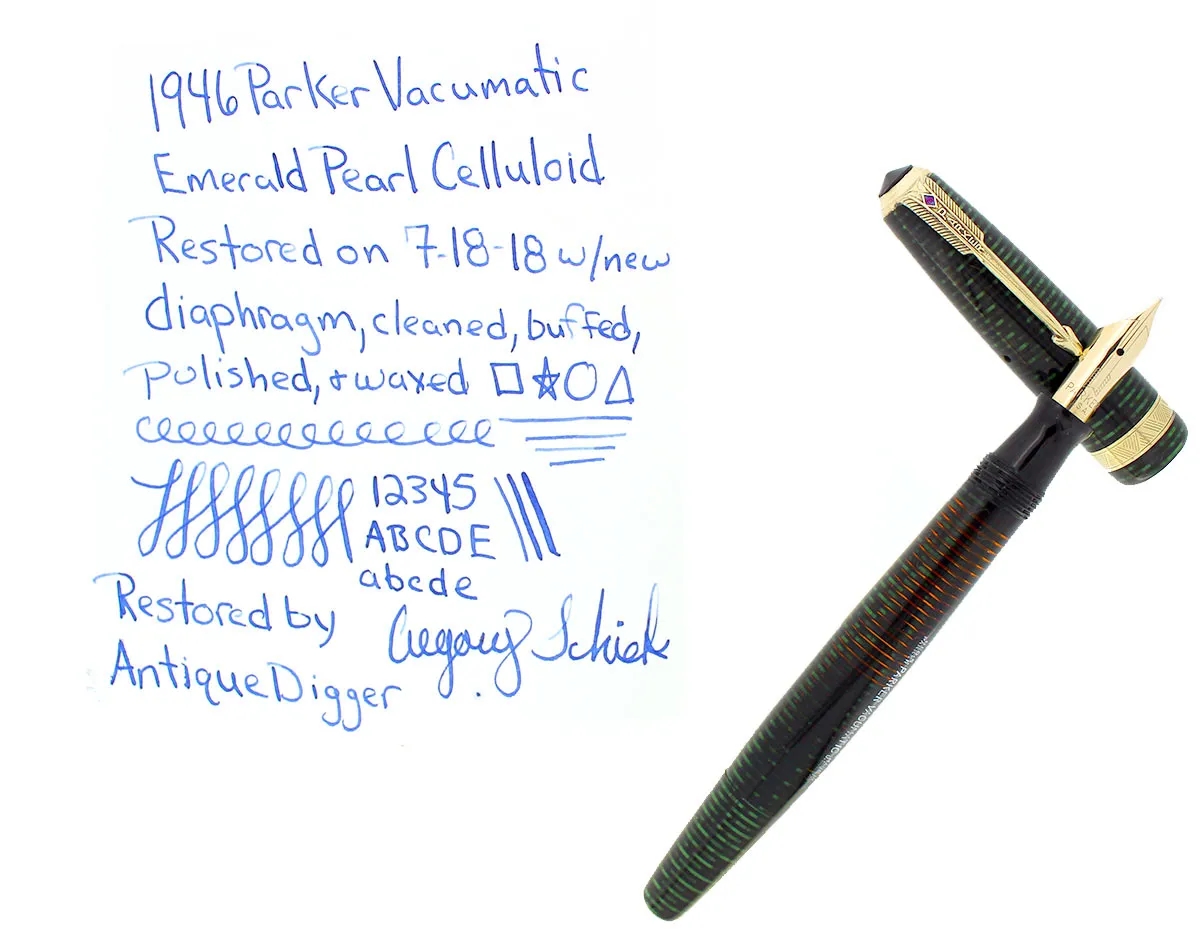 1946 Parker Vacumatic
Emerald Pearl Celluloid
Restored on 7-18-18 w/new
diaphragm, cleaned, buffed,
polished, & waxed
12345
ABCDE
abcde
Restored by
AntiqueDigger
Gregory
PARKER VACUMATIC